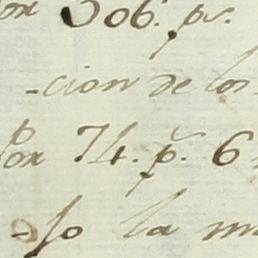 por 306. ps.
-cion de los
por 74. p.s 6
-lo la m